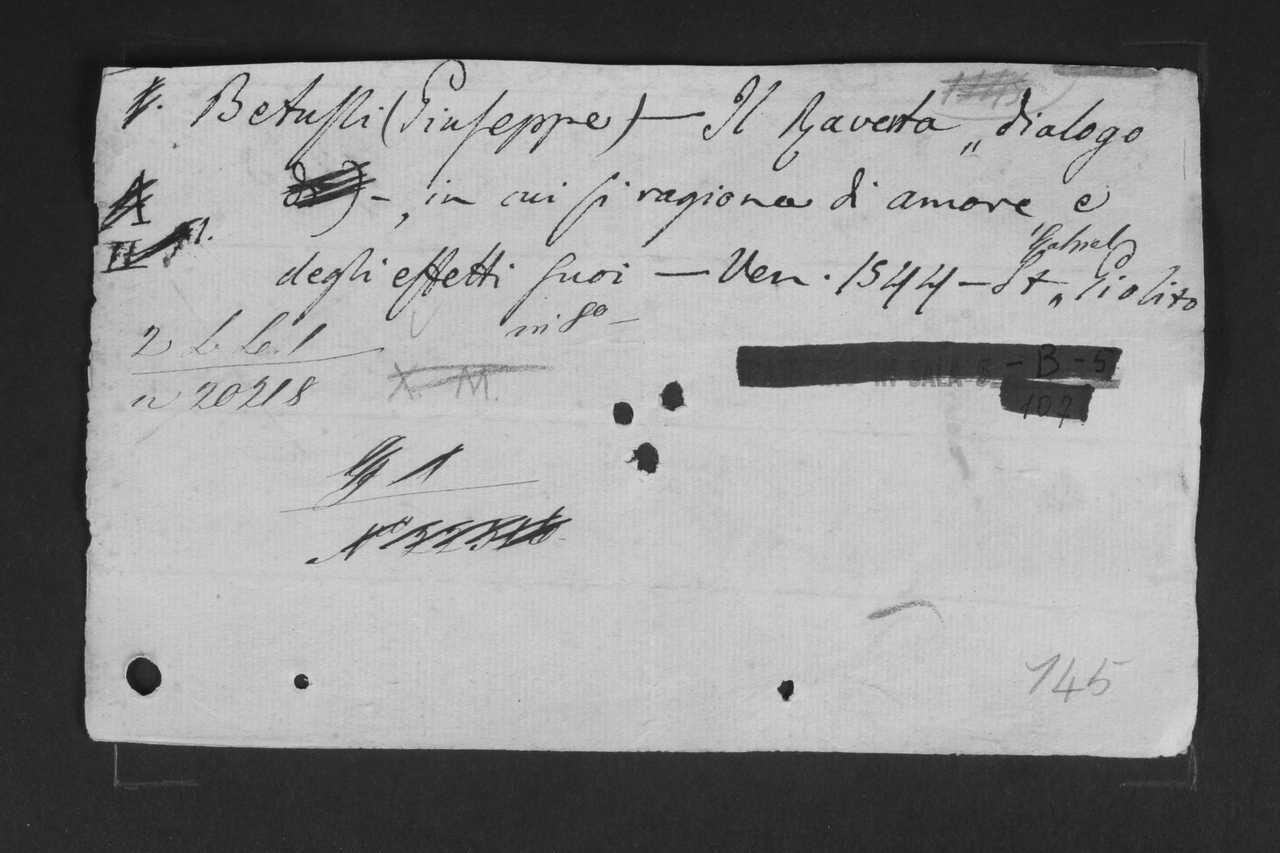 Betussi (Giuseppe) — Il Raverta „ dialogo
-, in cui si ragiona di amore e
degli effetti suoi — Ven. 1544 — St „ Giolito
Gabriel
in 8o —
n 20218
X. M.
IN SALA - B - 5
107
1
145